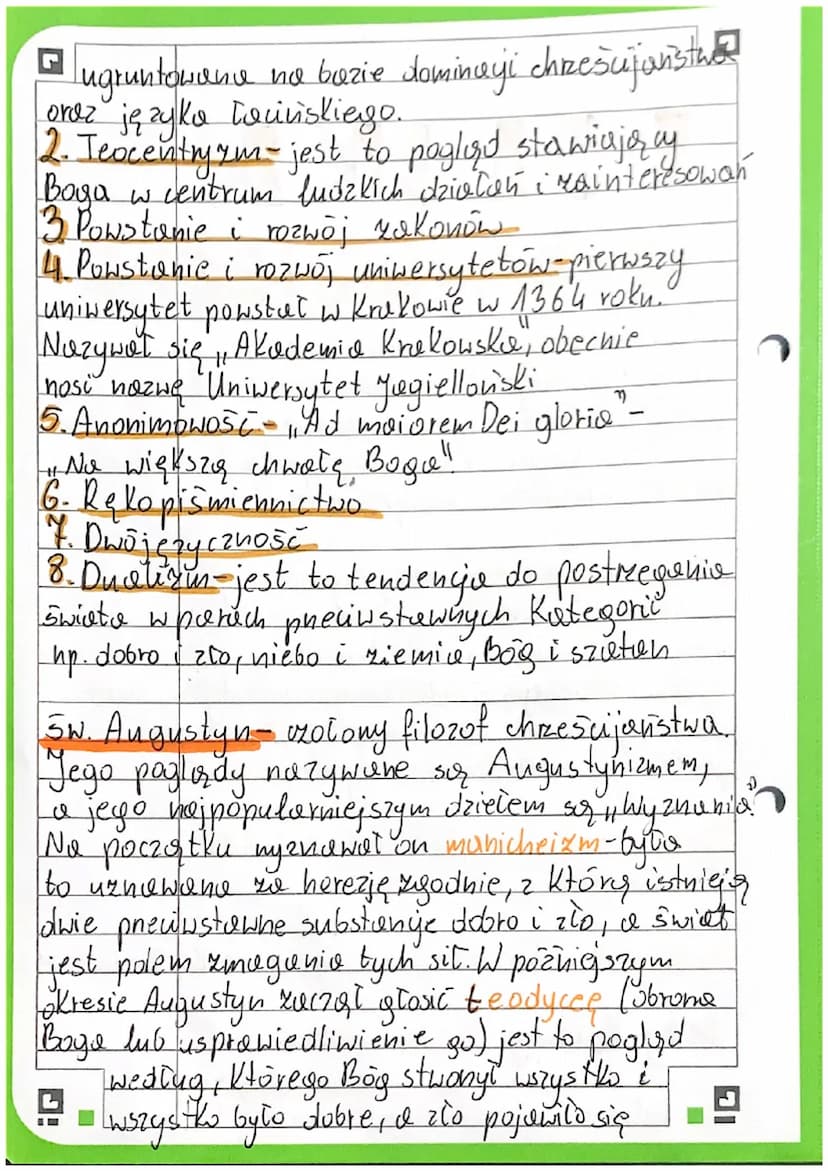 ugruntowana na bazie dominacji chrześcijaństwa
oraz języka łacińskiego.
2. Teocentryzm- jest to pogląd stawiający
Boga w centrum ludzkich działań i zainteresowań
3. Powstanie i rozwój zakonów
4. Powstanie i rozwój uniwersytetów-pierwszy
uniwersytet powstał w Krakowie w 1364 roku.
Nazywał się „Akademia Krakowska", obecnie
nosi nazwę Uniwersytet Jagielloński
5. Anonimowość- „Ad maiorem Dei gloria"-
„Na większą chwałę Boga"
6. Rękopiśmiennictwo
7. Dwójęzyczność
8. Dualizm-jest to tendencja do postrzegania
świata w parach przeciwstawnych kategorii
np. dobro i zło, niebo i ziemia, Bóg i szatan
św. Augustyn- czołony filozof chrześcijaństwa.
Jego poglądy nazywane są Augustynizmem,
a jego najpopularniejszym dziełem są „Wyznania"
Na początku wyznawał on manicheizm-była
to uznawana za herezję zgodnie, z którą istnieją
dwie przeciwstawne substancje dobro i zło, a świat
jest polem zmagania tych sił. W późniejszym
okresie Augustyn zaczął głosić teodyceę (obrona
Boga lub usprawiedliwienie go) jest to pogląd
według, którego Bóg stworzył wszystko i
wszystko było dobre, a zło pojawiło się